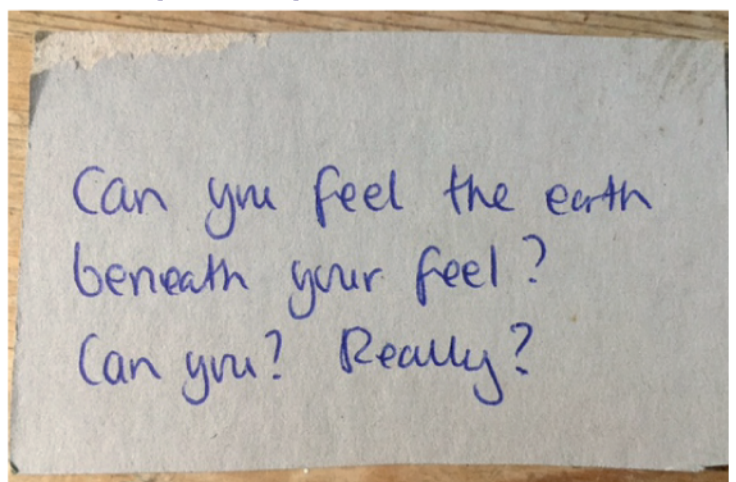 Can you feel the earth
beneath your feel?
Can you? Really?